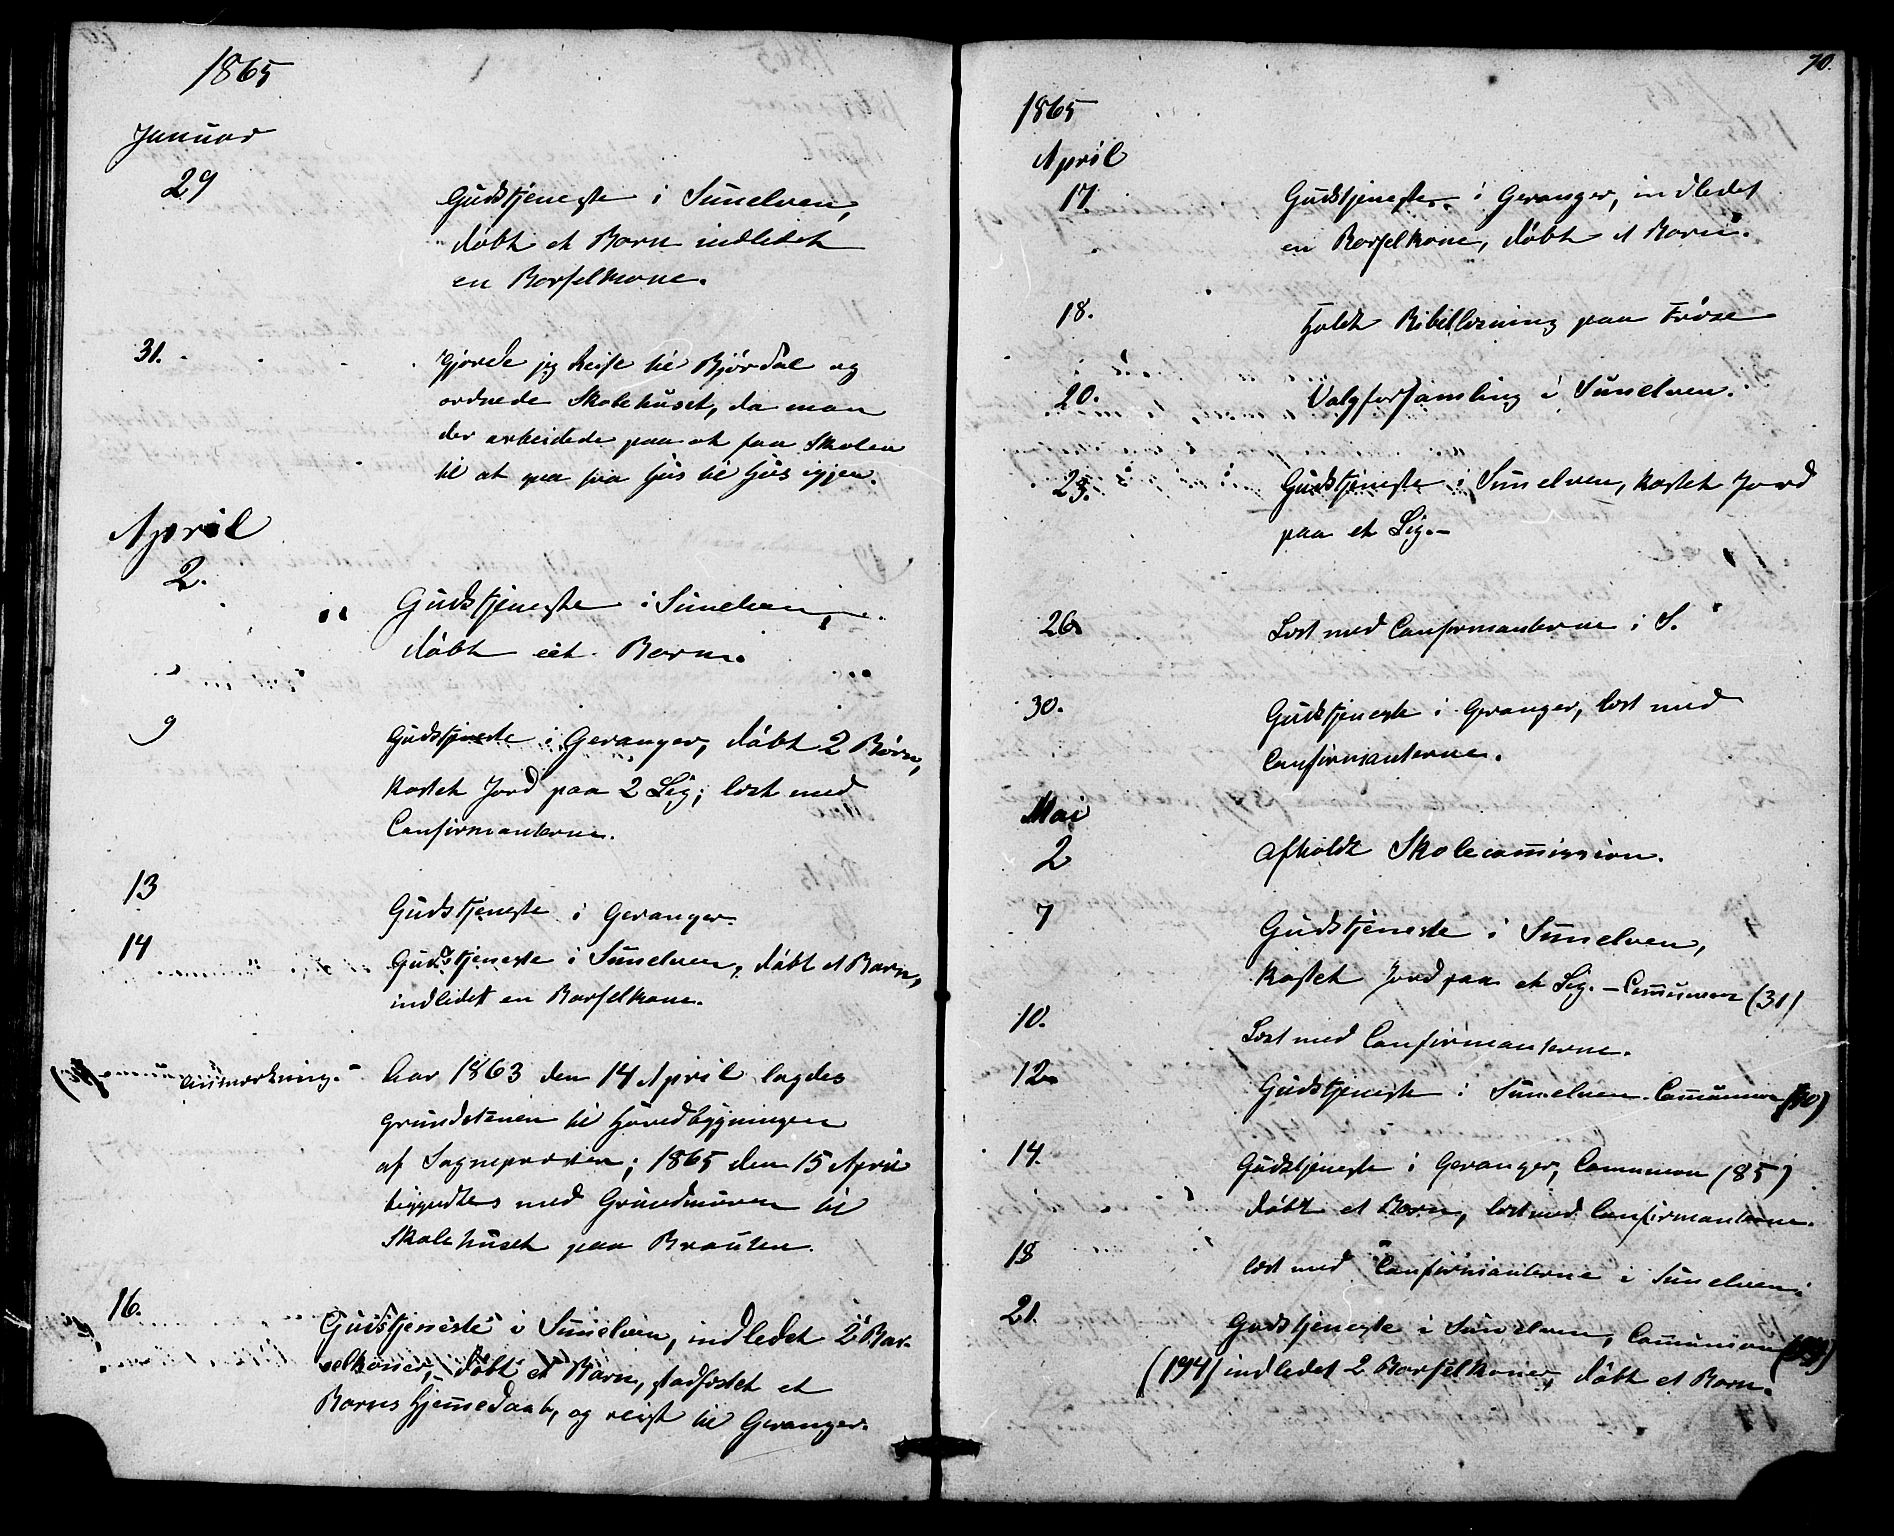 1865
Januar
29
Gudstjeneste i Sunelven,
döbt et Barn indledet
en Barselkone.
31.
gjorde jeg Reise til Björdal og
ordnede Skolehuset, da man
der arbeidede paa at faa Skolen
til at gaa fra Huus til Huus igjen.
April
2.
Gudstjeneste i Sunelven,
döbt eet Barn.
9
Gudstjeneste i Geranger, döbt 2 Börn,
kastet Jord paa 2 Lig; læst med
Confirmanterne.
13
Gudstjeneste i Geranger.
14
Gudstjeneste i Sunelven, döbt et Barn,
indledet en Barselkone.
Anmærkning.
Aar 1863 den 14 April lagdes
grundstenen til Hovedbygningen
af Sognepræsten; 1865 den 15 April
begyndtes med Grundmuren til
Skolehuset paa Brauten.
16.
Gudstjeneste i Sunelven, indledet 2 Bar-
selkoner, döbt et Barn, stadfæstet et
Barns Hjemmedaab, og reist til Geranger.
70.
1865
April
17.
Gudstjeneste i Geranger, indledet
en Barselkone, döbt et Barn.
18.
Holdt Bibellæsning paa
20.
Valgforsamling i Sunelven.
23.
Gudstjeneste i Sunelven, kastet Jord
paa et Lig.-
26.
Læst med Confirmanterne i S.
30.
Gudstjeneste i Geranger, læst med
Confirmanterne.
Mai
2
Afholdt Skolecommission.
7
Gudstjeneste i Sunelven,
kastet Jord paa et Lig. - Communion (31)
10.
Læst med Confirmanterne.
12.
Gudstjeneste i Sunelven. Communion
14.
Gudstjeneste i Geranger, Communion (85)
döbt et Barn, læst med Confirmanterne.
18
læst med Confirmanterne i Sunelven.
21.
Gudstjeneste i Sunelven, Communion
(194) indledet 2 Barselkoner, döbt et Barn.